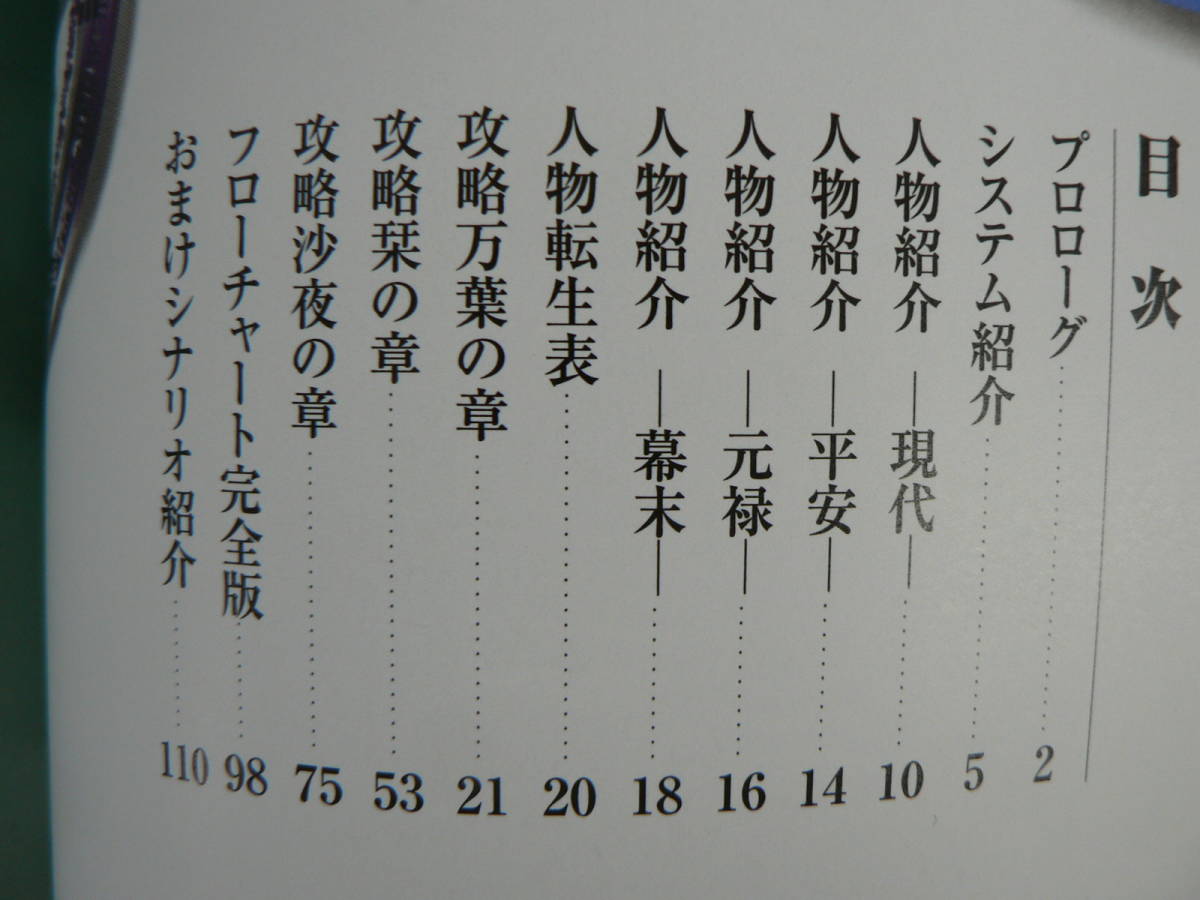 目次
プロローグ……………………2
システム紹介……………………5
人物紹介 ―現代―……………10
人物紹介 ―平安―……………14
人物紹介 ―元禄―……………16
人物紹介 ―幕末―……………18
人物転生表……………………20
攻略万葉の章……………………21
攻略栞の章……………………53
攻略沙夜の章……………………75
フローチャート完全版…………98
おまけシナリオ紹介……………110